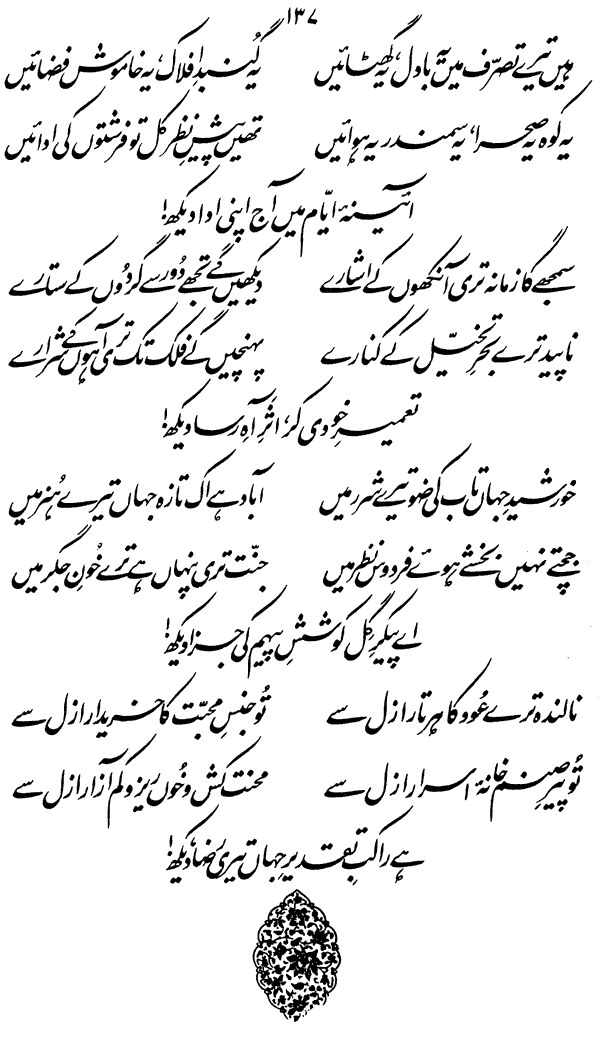 ۱۳۷
ہیں تیرے تصرّف میں یہ بادل، یہ گھٹائیں یہ گُنبدِ افلاک، یہ خاموش فضائیں
یہ کوہ یہ صحرا، یہ سمندر یہ ہوائیں تھیں پیشِ نظر کل تو فرشتوں کی ادائیں
آئینۂ ایّام میں آج اپنی ادا دیکھ!
سمجھے گا زمانہ تری آنکھوں کے اشارے دیکھیں گے تجھے دُور سے گردُوں کے ستارے
ناپید ترے بحرِ تخیّل کے کنارے پہنچیں گے فلک تک تری آہوں کے شرارے
تعمیرِ خودی کر، اَثرِ آہِ رسا دیکھ!
خورشیدِ جہاں تاب کی ضَو تیرے شرر میں آباد ہے اک تازہ جہاں تیرے ہُنر میں
جچتے نہیں بخشے ہوئے فردوس نظر میں جنّت تری پنہاں ہے ترے خُونِ جگر میں
اے پیکرِ گِل کوششِ پیہم کی جزا دیکھ!
نالندہ ترے عُود کا ہر تار ازل سے تُو جنسِ محبّت کا خریدار ازل سے
تُو پیرِ صنم خانۂ اسرار ازل سے محنت کش و خُوں ریز و کم آزار ازل سے
ہے راکبِ تقدیرِ جہاں تیری رضا، دیکھ!